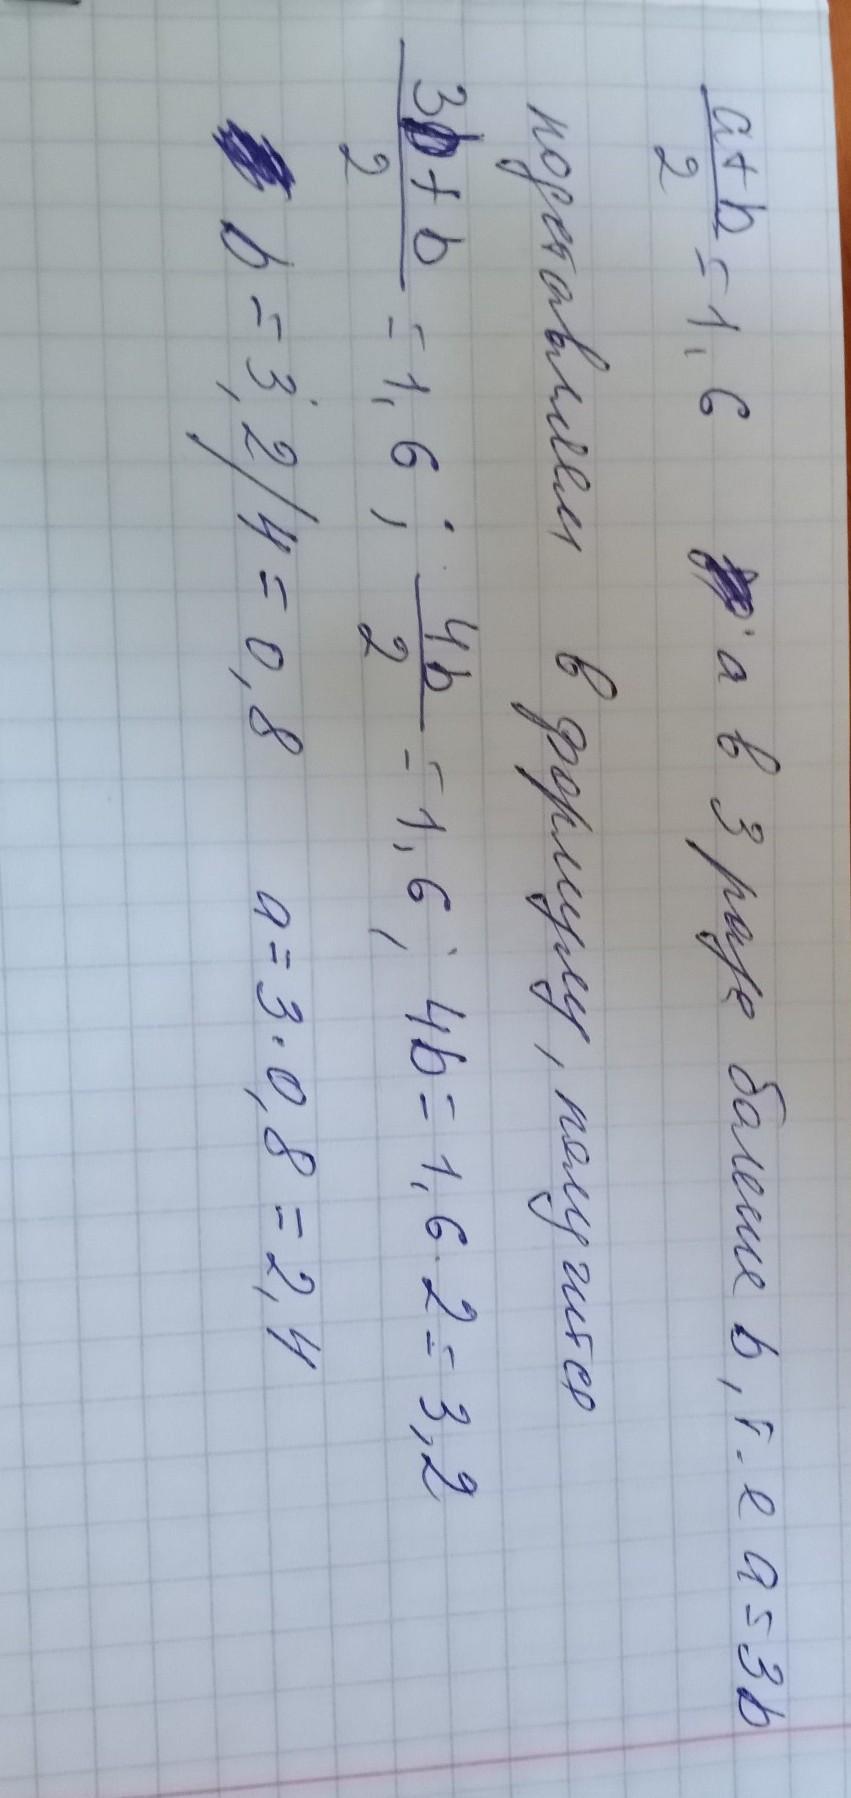 a+b/2 = 1,6 a в 3 раза больше b, т.е a=3b
подставляем в формулу, получится
3b+b/2 = 1,6; 4b/2 = 1,6; 4b = 1,6·2 = 3,2
b = 3,2/4 = 0,8 a = 3·0,8 = 2,4